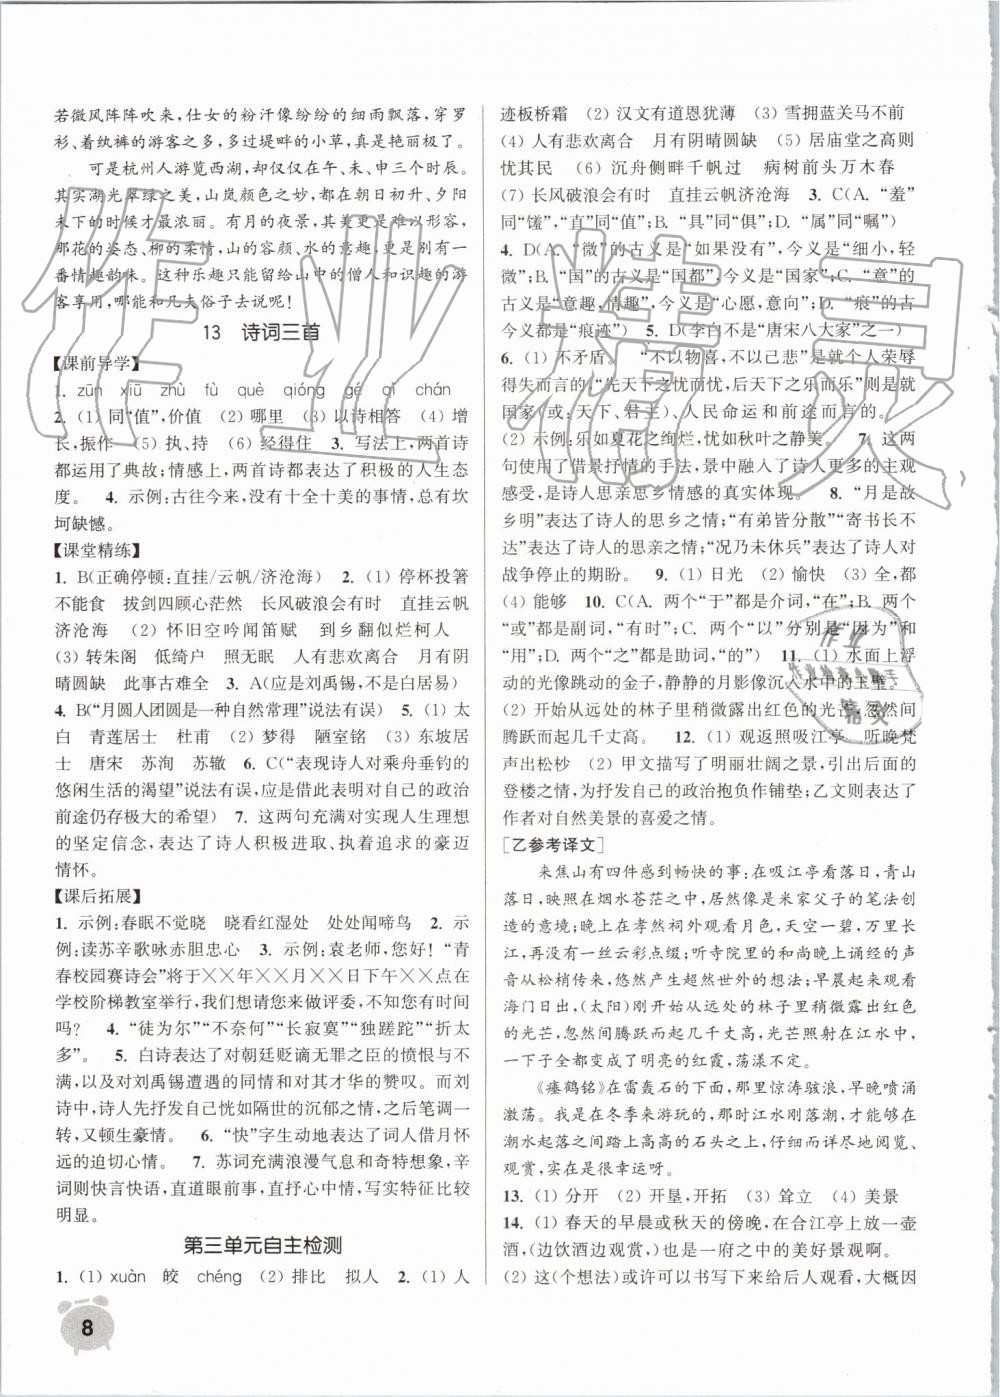 若微风阵阵吹来,仕女的粉汗像纷纷的细雨飘落,穿罗
衫、着纨裤的游客之多,多过堤畔的小草,真是艳丽极了。
可是杭州人游览西湖,却仅仅在午、未、申三个时辰。
其实湖光翠绿之美,山岚颜色之妙,都在朝日初升、夕阳
未下的时候才最浓丽。有月的夜景,其美更是难以形容,
那花的姿态、柳的柔情、山的容颜、水的意趣,更是别有一
番情趣韵味。这种乐趣只能留给山中的僧人和识趣的游
客享用,哪能和凡夫俗子去说呢!
13 诗词三首
【课前导学】
1. zūn xiū zhù fù què qióng gé qǐ chán
2. (1) 同“值”,价值 (2) 哪里 (3) 以诗相答 (4) 增
长,振作 (5) 执、持 (6) 经得住 3. 写法上,两首诗
都运用了典故;情感上,两首诗都表达了积极的人生态
度。 4. 示例:古往今来,没有十全十美的事情,总有坎
坷缺憾。
【课堂精练】
1. B(正确停顿:直挂/云帆/济沧海) 2. (1) 停杯投箸
不能食 拔剑四顾心茫然 长风破浪会有时 直挂云帆
济沧海 (2) 怀旧空吟闻笛赋 到乡翻似烂柯人
(3) 转朱阁 低绮户 照无眠 人有悲欢离合 月有阴
晴圆缺 此事古难全 3. A(刘禹锡,不是白居易)
4. B(“月圆人团圆是一种自然常理”说法有误) 5. (1) 太
白 青莲居士 杜甫 (2) 梦得 陋室铭 (3) 东坡居
士 唐宋 苏洵 苏辙 6. C(“表现诗人对乘舟垂钓的
悠闲生活的渴望”说法有误,应是借此表明对自己的政治
前途仍存极大的希望) 7. 这两句充满对实现人生理想
的坚定信念,表达了诗人积极进取、执着追求的豪迈
情怀。
【课后拓展】
1. 示例:春眠不觉晓 晓看红湿处 处处闻啼鸟 2. 示
例:读苏辛歌咏赤胆忠心 3. 示例:袁老师,您好!“青
春校园赛诗会”将于××年××月××日下午××点在
学校阶梯教室举行,我们想请您来做评委,不知您有时间
吗? 4. “徒为尔”“不奈何”“长寂寞”“独蹉跎”“折太
多”。 5. 白诗表达了对朝廷贬谪无罪之臣的愤恨与不
满,以及对刘禹锡遭遇的同情和对其才华的赞叹。而刘
诗中,诗人先抒发自己恍如隔世的沉郁之情,之后笔调一
转,又顿生豪情。 6. “快”字生动地表达了词人借月怀
远的迫切心情。 7. 苏词充满浪漫气息和奇特想象,辛
词则快言快语,直道眼前事,直抒心中情,写实特征比较
明显。
第三单元自主检测
1. (1) xuàn 皎 chéng (2) 排比 拟人 2. (1) 人
8
迹板桥霜 (2) 汉文有道恩犹薄 (3) 雪拥蓝关马不前
(4) 人有悲欢离合 月有阴晴圆缺 (5) 居庙堂之高则
忧其民 (6) 沉舟侧畔千帆过 病树前头万木春
(7) 长风破浪会有时 直挂云帆济沧海 3. C(A. “羞”
同“馐”,“直”同“值”;B. “具”同“俱”;D. “属”同“嘱”)
4. D(A. “微”的古义是“如果没有”,今义是“细小,轻
微”;B. “国”的古义是“国都”,今义是“国家”;C. “意”的
古义是“意趣,情趣”,今义是“心愿,意向”;D. “痕”的古
今义都是“痕迹”) 5. D(李白不是“唐宋八大家”之一)
6. (1) 不矛盾。 “不以物喜,不以己悲”是就个人荣辱
得失而言的,“先天下之忧而忧,后天下之乐而乐”则是就
国家(或:天下、君主)、人民命运和前途而言的。
(2) 示例:乐如夏花之绚烂,忧如秋叶之静美。 7. 这两
句使用了借景抒情的手法,景中融入了诗人更多的主观
感受,是诗人思亲思乡情感的真实体现。 8. “月是故
乡明”表达了诗人的思乡之情;“有弟皆分散”“寄书长不
达”表达了诗人的思亲之情;“况乃未休兵”表达了诗人对
战争停止的期盼。 9. (1) 日光 (2) 愉快 (3) 全,都
(4) 能够 10. C(A. 两个“于”是介词,“在”;B. 两个
“或”都是副词,“有时”;C. 两个“以”分别是“因为”和
“用”;D. 两个“之”都是助词,“的”) 11. (1) 水面上浮
动的光像跳动的金子,静静的月影像沉入水中的玉璧。
(2) 开始从远处的林子里稍微露出红色的光芒,忽然间
腾跃而起几千丈高。 12. (1) 观返照吸江亭 听晚梵
声出松杪 (2) 甲文描写了明丽壮阔之景,为后面的
登楼之情,为抒发自己的政治抱负作铺垫;乙文表达了
作者对自然美景的喜爱之情。
[乙参考译文]
来焦山有四件感到畅快的事:在吸江亭看落日,青山
落日,映照在烟水苍茫之中,是米家父子的笔法所
创造的意境;晚上在孝然祠外观看月色,天空一碧,万里长
江,再也没有一丝云彩点缀;听寺院里的和尚晚上诵经的声
音从松梢传来,悠然产生超然世外的想法;早晨起来观看
海门日出,(太阳)开始从远处的林子里稍微露出红色
的光芒,忽然间腾跃而起几千丈高,光芒照射在江水中,
一下子全都变成了明亮的红霞,荡漾不定。
《瘗鹤铭》在雷轰石的下面,那里惊涛骇浪,早晚喷涌
激荡。我是在冬季来游玩的,那时江水刚落潮,才能够在
潮水退去之际踏上高高的石头之上,仔细而详尽地阅览、
观赏,实在是很幸运呀。
13. (1) 分开 (2) 开垦,开拓 (3) 耸立 (4) 美景
14. (1) 春天的早晨或秋天的傍晚,在合江亭放一壶
酒,(边饮酒边观赏)真是一府之中的美好景观啊。
(2) 这(个想法)或许可以书写下来给后人观看,大概因
作业精灵
作业
作业检查小帮手
精灵